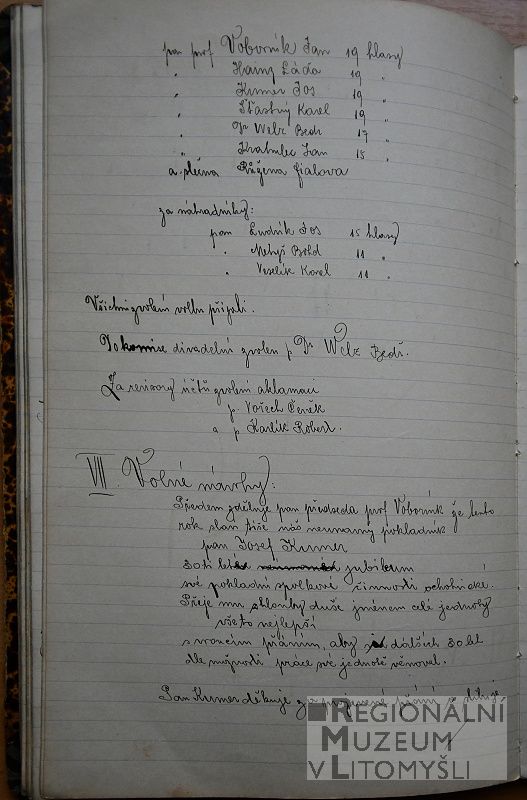 pan prof Voborník Jan 19 hlasy
" Hainz Láďa 19 "
" Kumer Jos 19 "
" Šťastný Karel 19 "
" Dr Welz Bedr 17 "
" Kratochvíl Jan 15 "
a slečna Růžena Fialova
za náhradníky:
pan Ludvík Jos 15 hlasy
" Bohd 11 "
" Veselík Karel 11 "
Všichni zvolení volbu přijali.
Do komise divadelní zvolen p. Dr Welz Bedř.
Za revisory účtů zvoleni aklamací
p. Vořech Čeněk
a p Karlík Robert.
VII. Volné návrhy:
Předem zděluje pan předseda prof Voborník že tento
rok slaví tiše náš neunavný pokladník
pan Josef Kumer
30ti leté jubileum
své pokladní spolkové činnosti ochotnické.
Přeje mu z hlouby duše jménem celé jednoty
všeto nejlepší
s vroucím přáním, aby dalších 30 let
dle možnosti práce své jednotě věnoval.
Pan Kumer děkuje za přání a slibuje
REGIONÁLNÍ
MUZEUM
V LITOMYŠLI